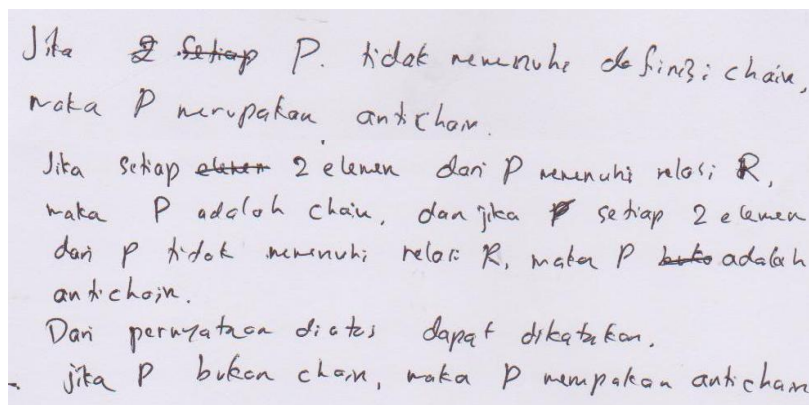 Jika P. tidak memenuhi definisi chain,
maka P merupakan antichain.
Jika setiap 2 elemen dari P memenuhi relasi R,
maka P adalah chain, dan jika setiap 2 elemen
dari P tidak memenuhi relasi R, maka P adalah
antichain.
Dari pernyataan diatas dapat dikatakan.
jika P bukan chain, maka P merupakan antichain